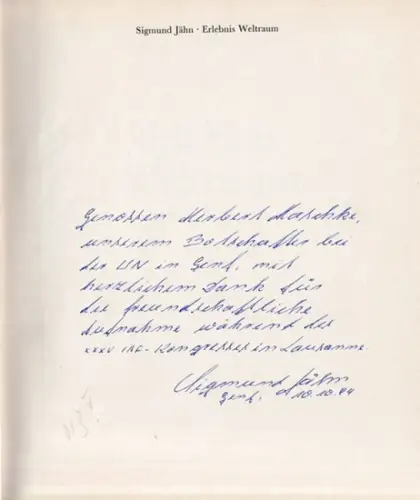 Sigmund Jähn · Erlebnis Weltraum
Genossen Herbert Maschke,
unserem Botschafter bei
der UN in Genf, mit
herzlichem Dank für
die freundschaftliche
Aufnahme während des
XXXV IAF-Kongresses in Lausanne.
Sigmund Jähn
Genf, 10.10.84